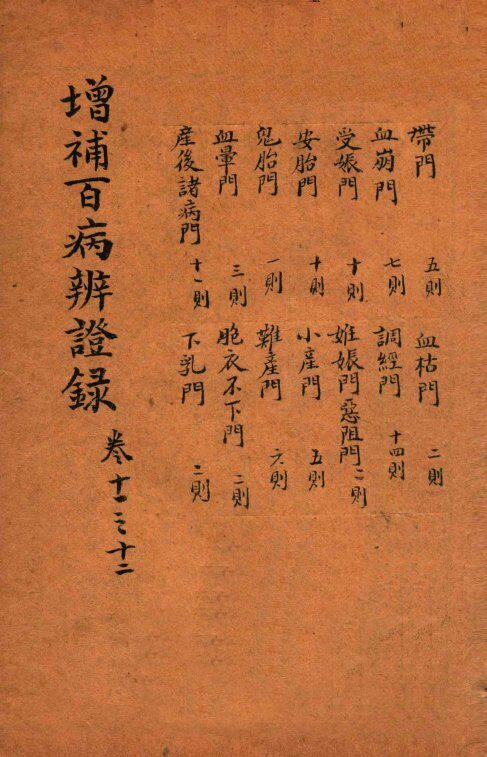 帶門 五則 血枯門 二則
血崩門 七則 調經門 十四則
受娠門 十則 妊娠門惡阻門 二則
安胎門 十則 小產門 五則
鬼胎門 一則 難產門 六則
血暈門 三則 胞衣不下門 二則
産後諸病門 十一則 下乳門 二則
增補百病辨證録 卷十一之十二